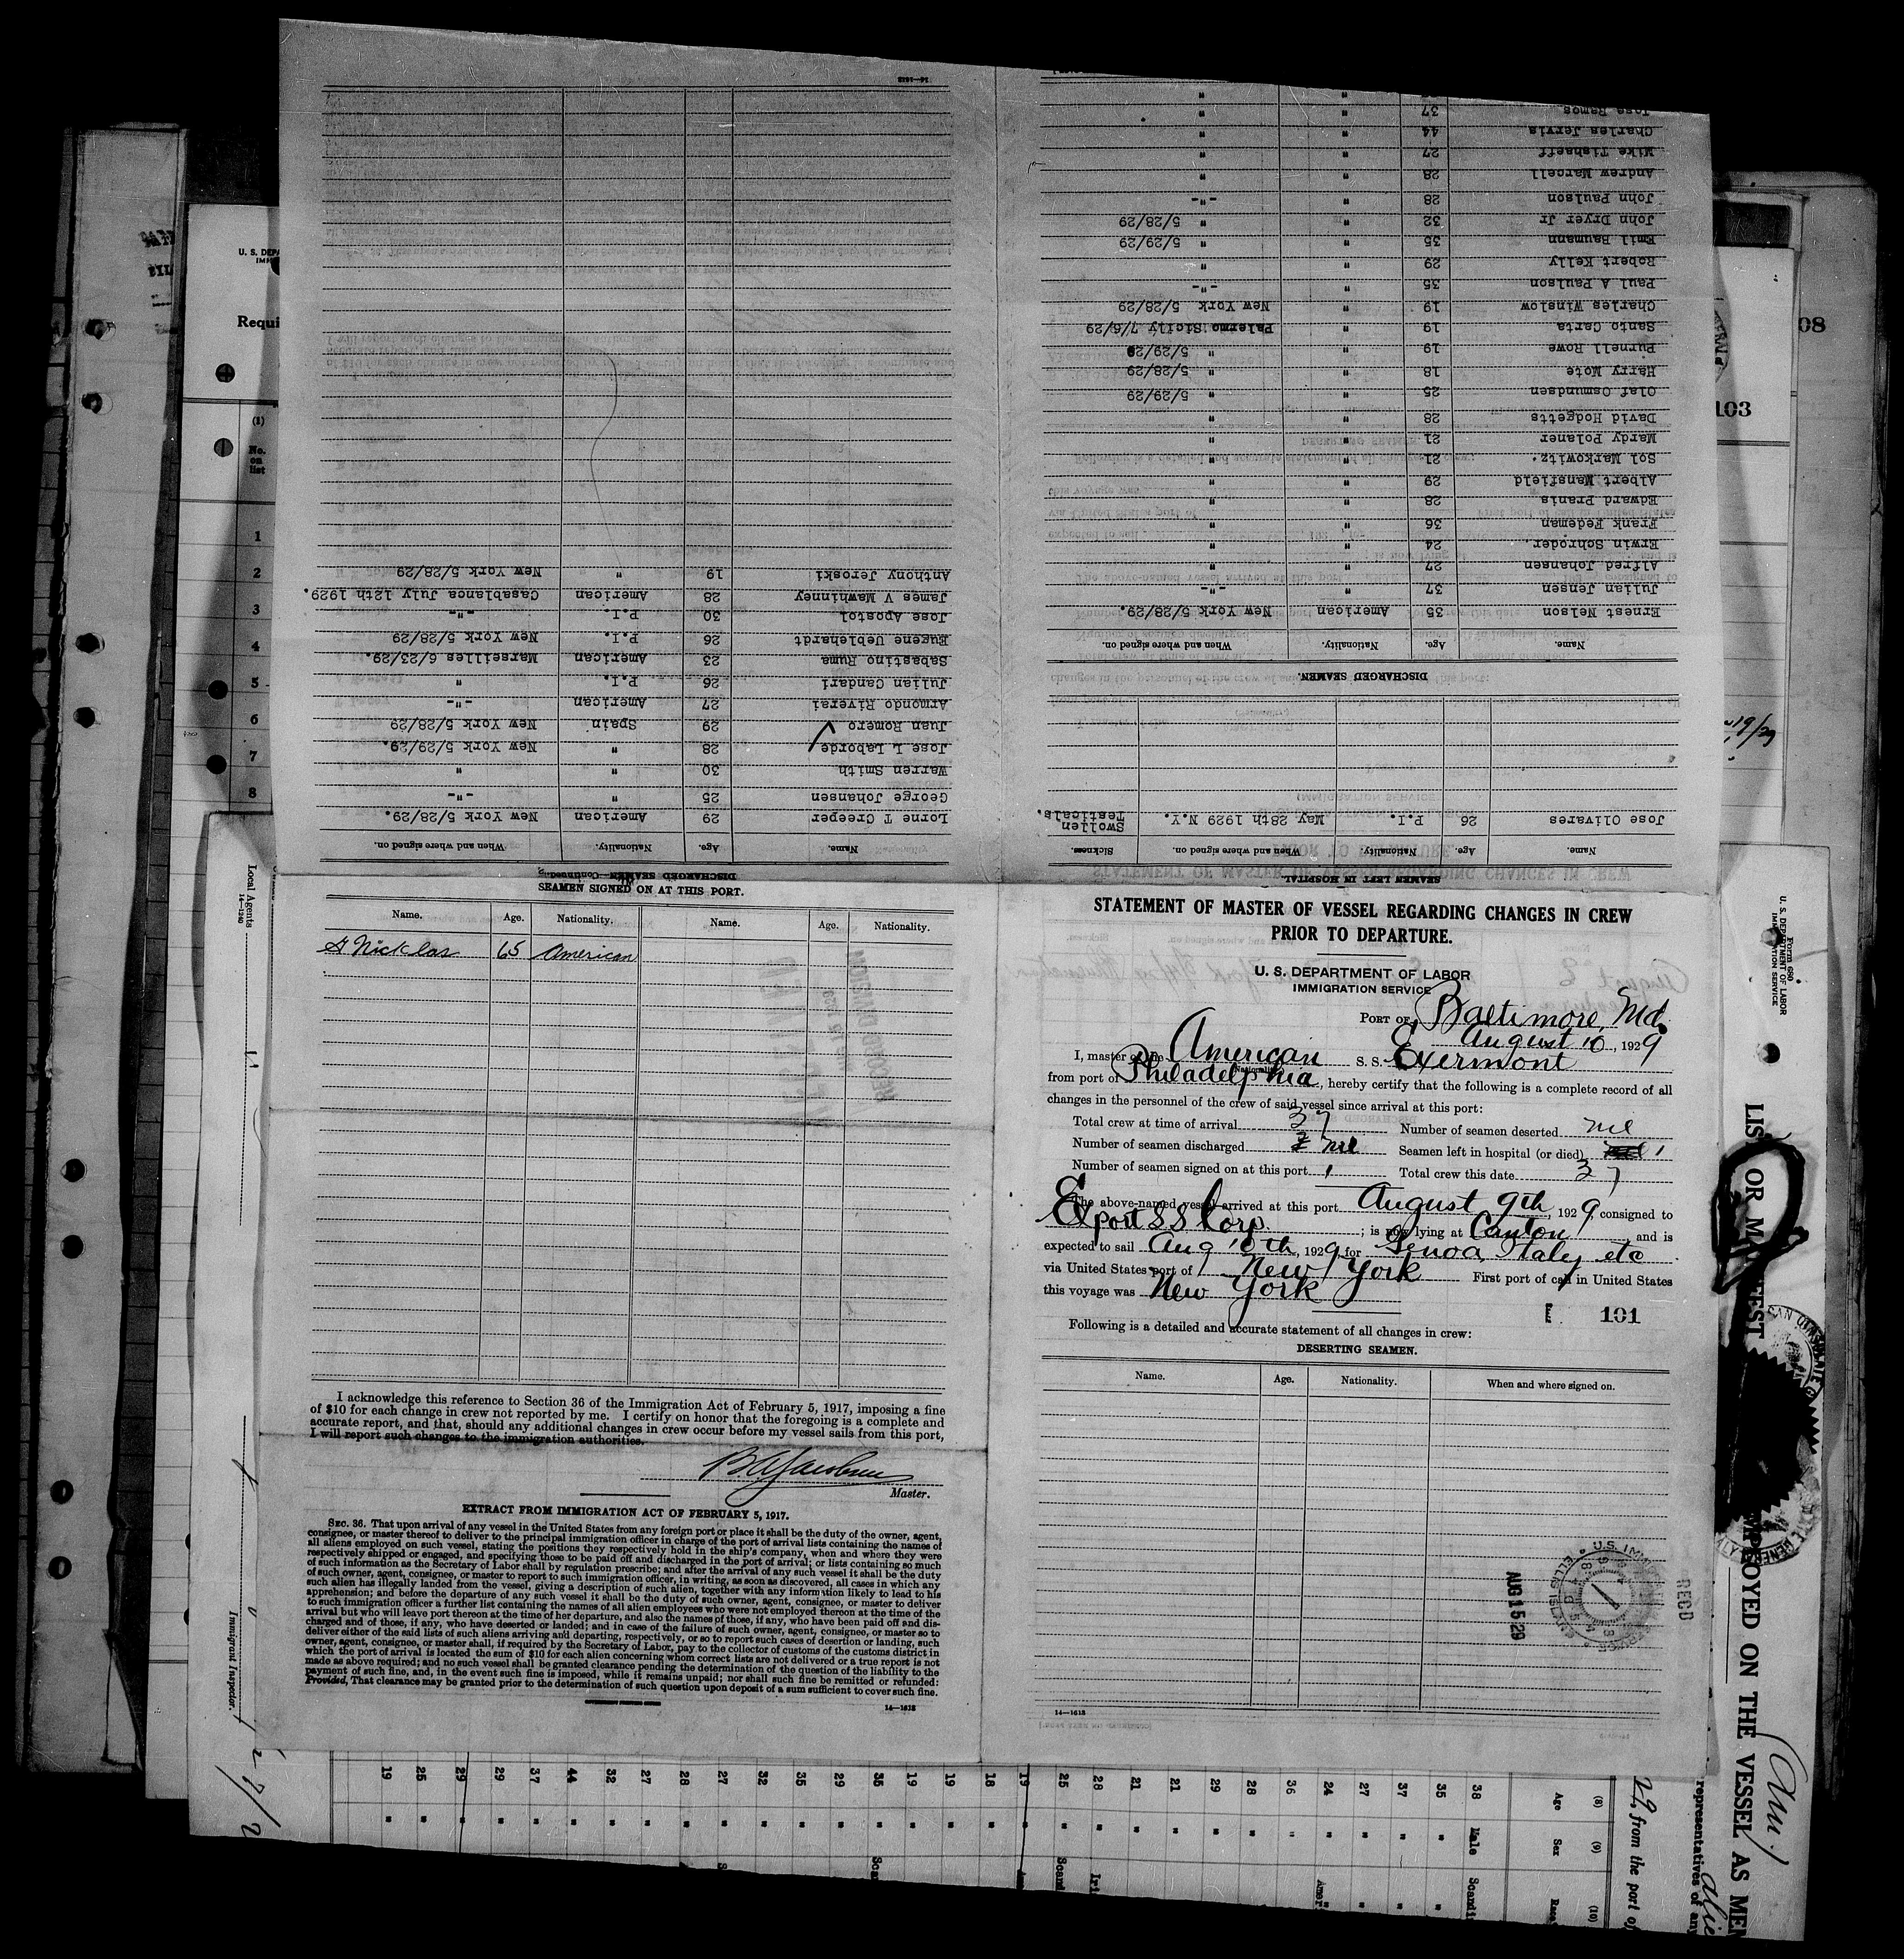 STATEMENT OF MASTER OF VESSEL REGARDING CHANGES IN CREW
PRIOR TO DEPARTURE.
U. S. DEPARTMENT OF LABOR
IMMIGRATION SERVICE
PORT OF Baltimore, Md.
August 10, 1929
I, master of the American S. S. Exermont
Nationality
from port of Philadelphia, hereby certify that the following is a complete record of all
changes in the personnel of the crew of said vessel since arrival at this port:
Total crew at time of arrival 37 Number of seamen deserted nil
Number of seamen discharged nil Seamen left in hospital (or died) 1
Number of seamen signed on at this port 1 Total crew this date 37
The above-named vessel arrived at this port August 9th, 1929, consigned to
Export S S Corp. ; is now lying at Canton, and is
expected to sail Aug 10th, 1929, for Genoa, Italy etc
via United States port of New York First port of call in United States
this voyage was New York
101
Following is a detailed and accurate statement of all changes in crew:
DESERTING SEAMEN.
Name. Age. Nationality. When and where signed on.
AUG 15 29
RECD
14—1618
SEAMEN LEFT IN HOSPITAL
Name. Age. Nationality. When and where signed on. Sickness.
Jose Olivares 26 P.I. May 28th 1929 N.Y. Swollen
Testicals.
DISCHARGED SEAMEN.
Name. Age. Nationality. When and where signed on.
Ernest Nelson 35 American New York 5/28/29.
Julian Jensen 37 " -"-
Alfred Johansen 27 " "
Erwin Schroder. 24 " "
Frank Fedeman 36 " "
Edward Pranis 28 " "
Albert Mansfield 29 " "
Sol Markowitz. 21 " "
Mardy Polaner 21 " "
David Hodgetts 28 " "
Olaf Osmundsen 25 " " 5/29/29
Harry Mote 18 " " 5/28/29
Purnell Rowe 19 " " 5/29/29
Santo Carta 19 " Palermo Sicily 7/6/29
Charles Winslow 19 " New York 5/28/29
Paul A Paulson 35 " -"-
Robert Kelly 29 " "
Emil Baumann 35 " " 5/29/29
John Dryer Jr 32 " " 5/28/29
John Paulson 28 " -"-
Andrew Marcell 28 " "
Mike Tishaeff 27 " "
Charles Jervis 44 " "
Jose Ramos 37 " "
DISCHARGED SEAMEN—Continued.
Name. Age. Nationality. When and where signed on.
Lorne T Creeper 29 American New York 5/28/29.
George Johansen 25 " -"-
Warren Smith 30 " "
Jose L Laborde 28 " New York 5/29/29.
Juan Romero 29 Spain New York 5/28/29
Armondo Riverai 27 American -"-
Julian Candari 26 P.I. "
Sabastino Ruma 23 American Marseilles 6/23/29.
Eugene Ueblehardt 26 P.I. New York 5/28/29
Jose Apostol 30 P.I. -"-
James V Mawhinney 28 American Casablanca July 12th 1929.
Anthony Jeroski 19 " New York 5/28/29
14—1618
SEAMEN SIGNED ON AT THIS PORT.
Name. Age. Nationality. Name. Age. Nationality.
G Nicklas 65 American
I acknowledge this reference to Section 36 of the Immigration Act of February 5, 1917, imposing a fine
of $10 for each change in crew not reported by me. I certify on honor that the foregoing is a complete and
accurate report, and that, should any additional changes in crew occur before my vessel sails from this port,
I will report such changes to the immigration authorities.
B A Jacobsen
Master.
EXTRACT FROM IMMIGRATION ACT OF FEBRUARY 5, 1917.
SEC. 36. That upon arrival of any vessel in the United States from any foreign port or place it shall be the duty of the owner, agent,
consignee, or master thereof to deliver to the principal immigration officer in charge of the port of arrival lists containing the names of
all aliens employed on such vessel, stating the positions they respectively hold in the ship's company, when and where they were
respectively shipped or engaged, and specifying those to be paid off and discharged in the port of arrival; or lists containing so much
of such information as the Secretary of Labor shall by regulation prescribe; and after the arrival of any such vessel it shall be the duty
of such owner, agent, consignee, or master to report to such immigration officer, in writing, as soon as discovered, all cases in which any
such alien has illegally landed from the vessel, giving a description of such alien, together with any information likely to lead to his
apprehension; and before the departure of any such vessel it shall be the duty of such owner, agent, consignee, or master to deliver
to such immigration officer a further list containing the names of all alien employees who were not employed thereon at the time of the
arrival but who will leave port thereon at the time of her departure, and also the names of those, if any, who have been paid off and dis-
charged and of those, if any, who have deserted or landed; and in case of the failure of such owner, agent, consignee, or master so to
deliver either of the said lists of such aliens arriving and departing, respectively, or so to report such cases of desertion or landing, such
owner, agent, consignee, or master shall, if required by the Secretary of Labor, pay to the collector of customs of the customs district in
which the port of arrival is located the sum of $10 for each alien concerning whom correct lists are not delivered or a true report is not
made as above required; and no such vessel shall be granted clearance pending the determination of the question of the liability to the
payment of such fine, and, in the event such fine is imposed, while it remains unpaid; nor shall such fine be remitted or refunded:
Provided, That clearance may be granted prior to the determination of such question upon deposit of a sum sufficient to cover such fine.
GOVERNMENT PRINTING OFFICE
14—1618
U. S. DEPA
Requi
(1)
No.
on
list
1
2
3
4
5
6
7
8
Local Agents
14—1240
Immigrant Inspector.
08
103
Form 680
U. S. DEPARTMENT OF LABOR
IMMIGRATION SERVICE
LIST OR MANIFEST
EMPLOYED ON THE VESSEL AS MEM
representatives of any
29, from the port of
(8) (9) (10)
Age Sex Race
38 Male Scandi
19 25 29 29 37 44 32 27 28 27 32 35 29 35 19 19 18 19 25 28 21 21 29 28 36 24 27 37 35